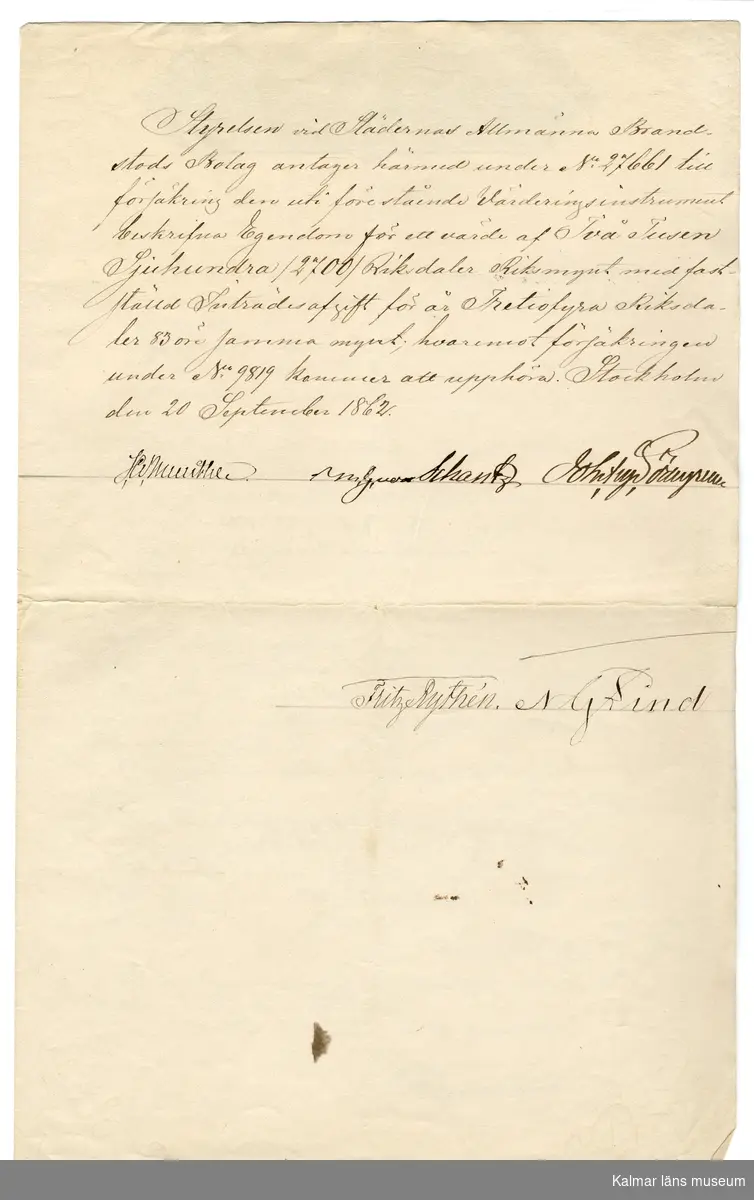 Styrelsen vid Städernas Allmänna Brand-
stods Bolag antager härmed under No 27661 till
försäkring den uti förestående Värderingsinstrument
beskrifna Egendom för ett värde af Två Tusen
Sjuhundra /2700/ Riksdaler Riksmynt med fast-
ställd Inträdesafgift för år Tretiofyra Riksda-
ler 83 öre samma mynt; hvaremot försäkringen
under No 9819 kommer att upphöra. Stockholm
den 20 September 1862.
Schantz
Fritz Rythén. N G Lind
Kalmar läns museum